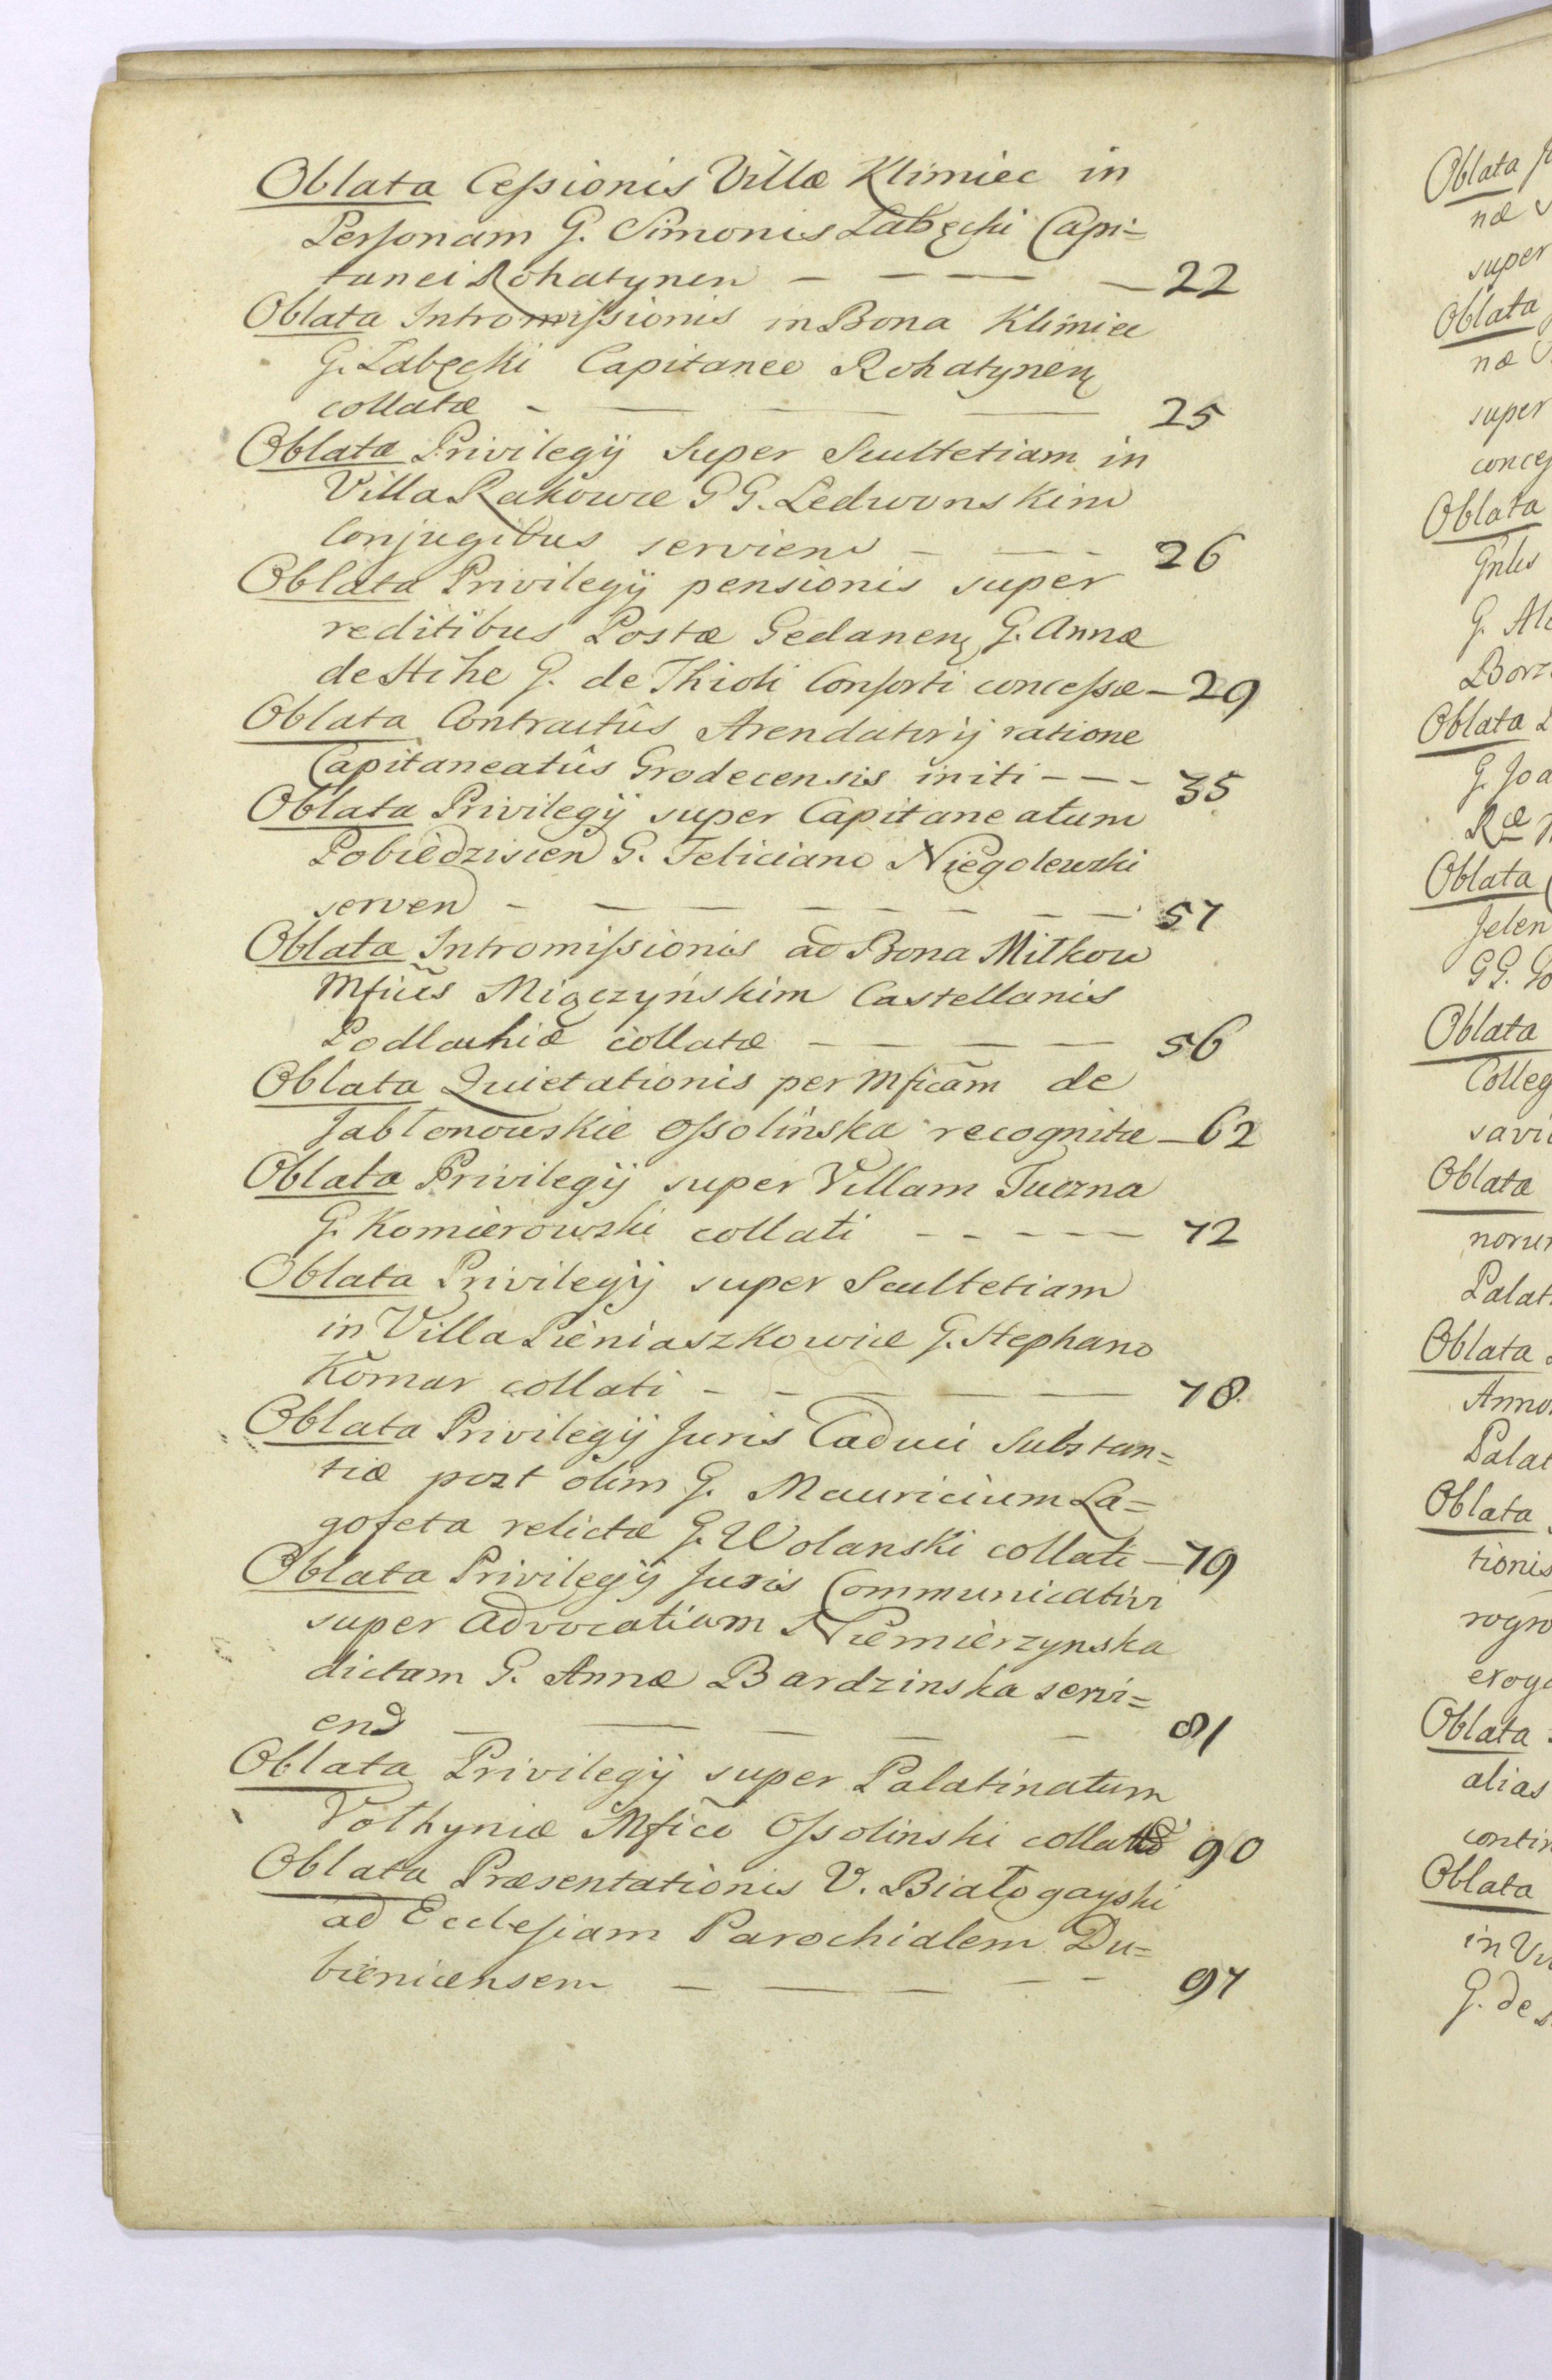 Oblata Cessionis Villæ Klimiec in
Personam G. Simonis Łabęcki Capi=
tanei Rohatynen — — — — 22
Oblata Intromissionis in Bona Klimiec
G. Łabęcki Capitaneo Rohatynen
collatæ - — — — — 25
Oblata Privilegij Super Scultetiam in
Villa Rakowce GG. Ledwonskim
Conjugibus serviens — — - 26
Oblata Privilegij pensionis super
reditibus Postæ Gedanen G. Annæ
de Hihe G. de Thioli Consorti concessæ — 29
Oblata Contractûs Arendatorij ratione
Capitaneatûs Grodecensis initi - — - 35
Oblata Privilegij super Capitaneatum
Pobiedzisien G. Feliciano Niegolewski
serven - — — — - — — 57
Oblata Intromissionis ad Bona Miłkow
Mficis Miączyńskim Castellanis
Podlachiæ collatæ — — — — 56
Oblata Quietationis per Mficam de
Jabłonowskie Ossolińska recognitæ — 62
Oblata Privilegij super Villam Tuczna
G. Komierowski collati - - - — — 72
Oblata Privilegij super Scultetiam
in Villa Pieniaszkowice G. Stephano
Komar collati - - — — — 78.
Oblata Privilegij Juris Caduci Substan=
tiæ post olim G. Mauricium La=
gofeta relictæ G. Wolanski collati — 79
Oblata Privilegij Juris Communicativi
super Advocatiam Niemierzynska
dictam G. Annæ Bardzinska servi=
end — — — — - 81
Oblata Privilegij super Palatinatum
Volhyniæ Mfico Ossolinski 90
Oblata Præsentationis V. Białogayski
ad Ecclesiam Parochialem Du=
bienicensem — — — - - 97
Oblata
næ
super
Oblata
næ
super
Oblata
G.
Oblata
Oblata
GG.
Oblata
Oblata
Oblata
Oblata
tionis
Oblata
alias
Oblata
G. de